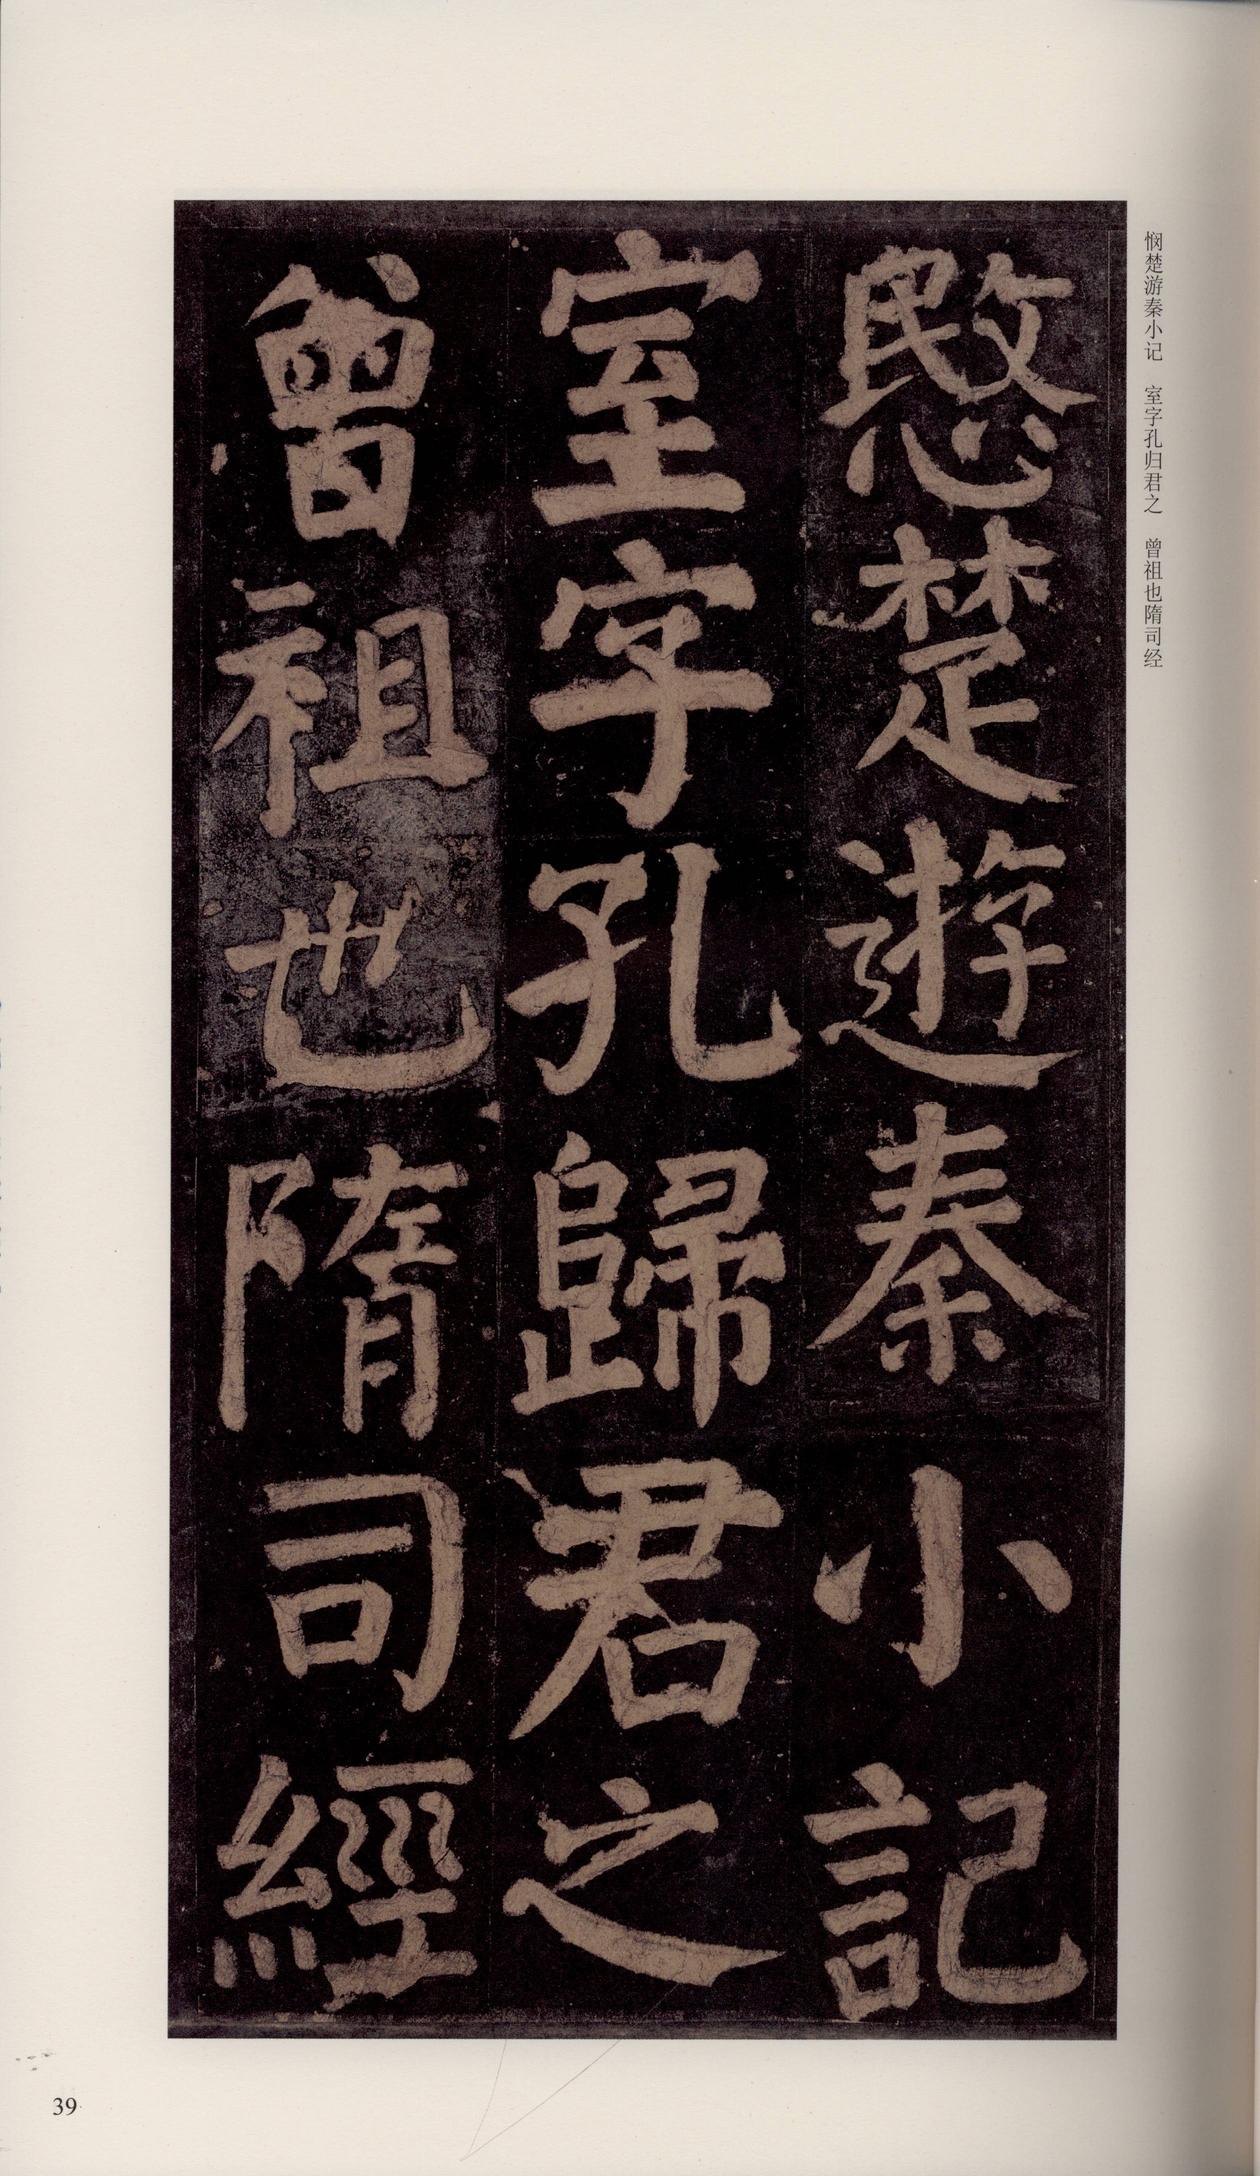 悯楚游秦小记　室字孔归君之　曾祖也隋司经
愍楚遊秦小記
室字孔歸君之
曾祖也隋司經
39